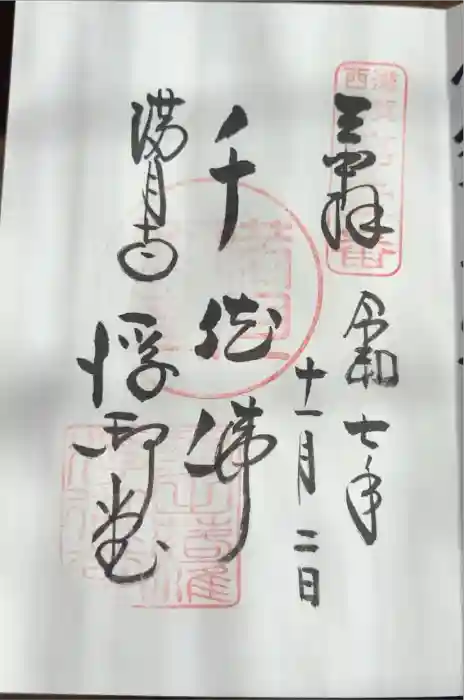 奉拝
令和七年
十一月二日
千体佛
満月寺
浮御堂